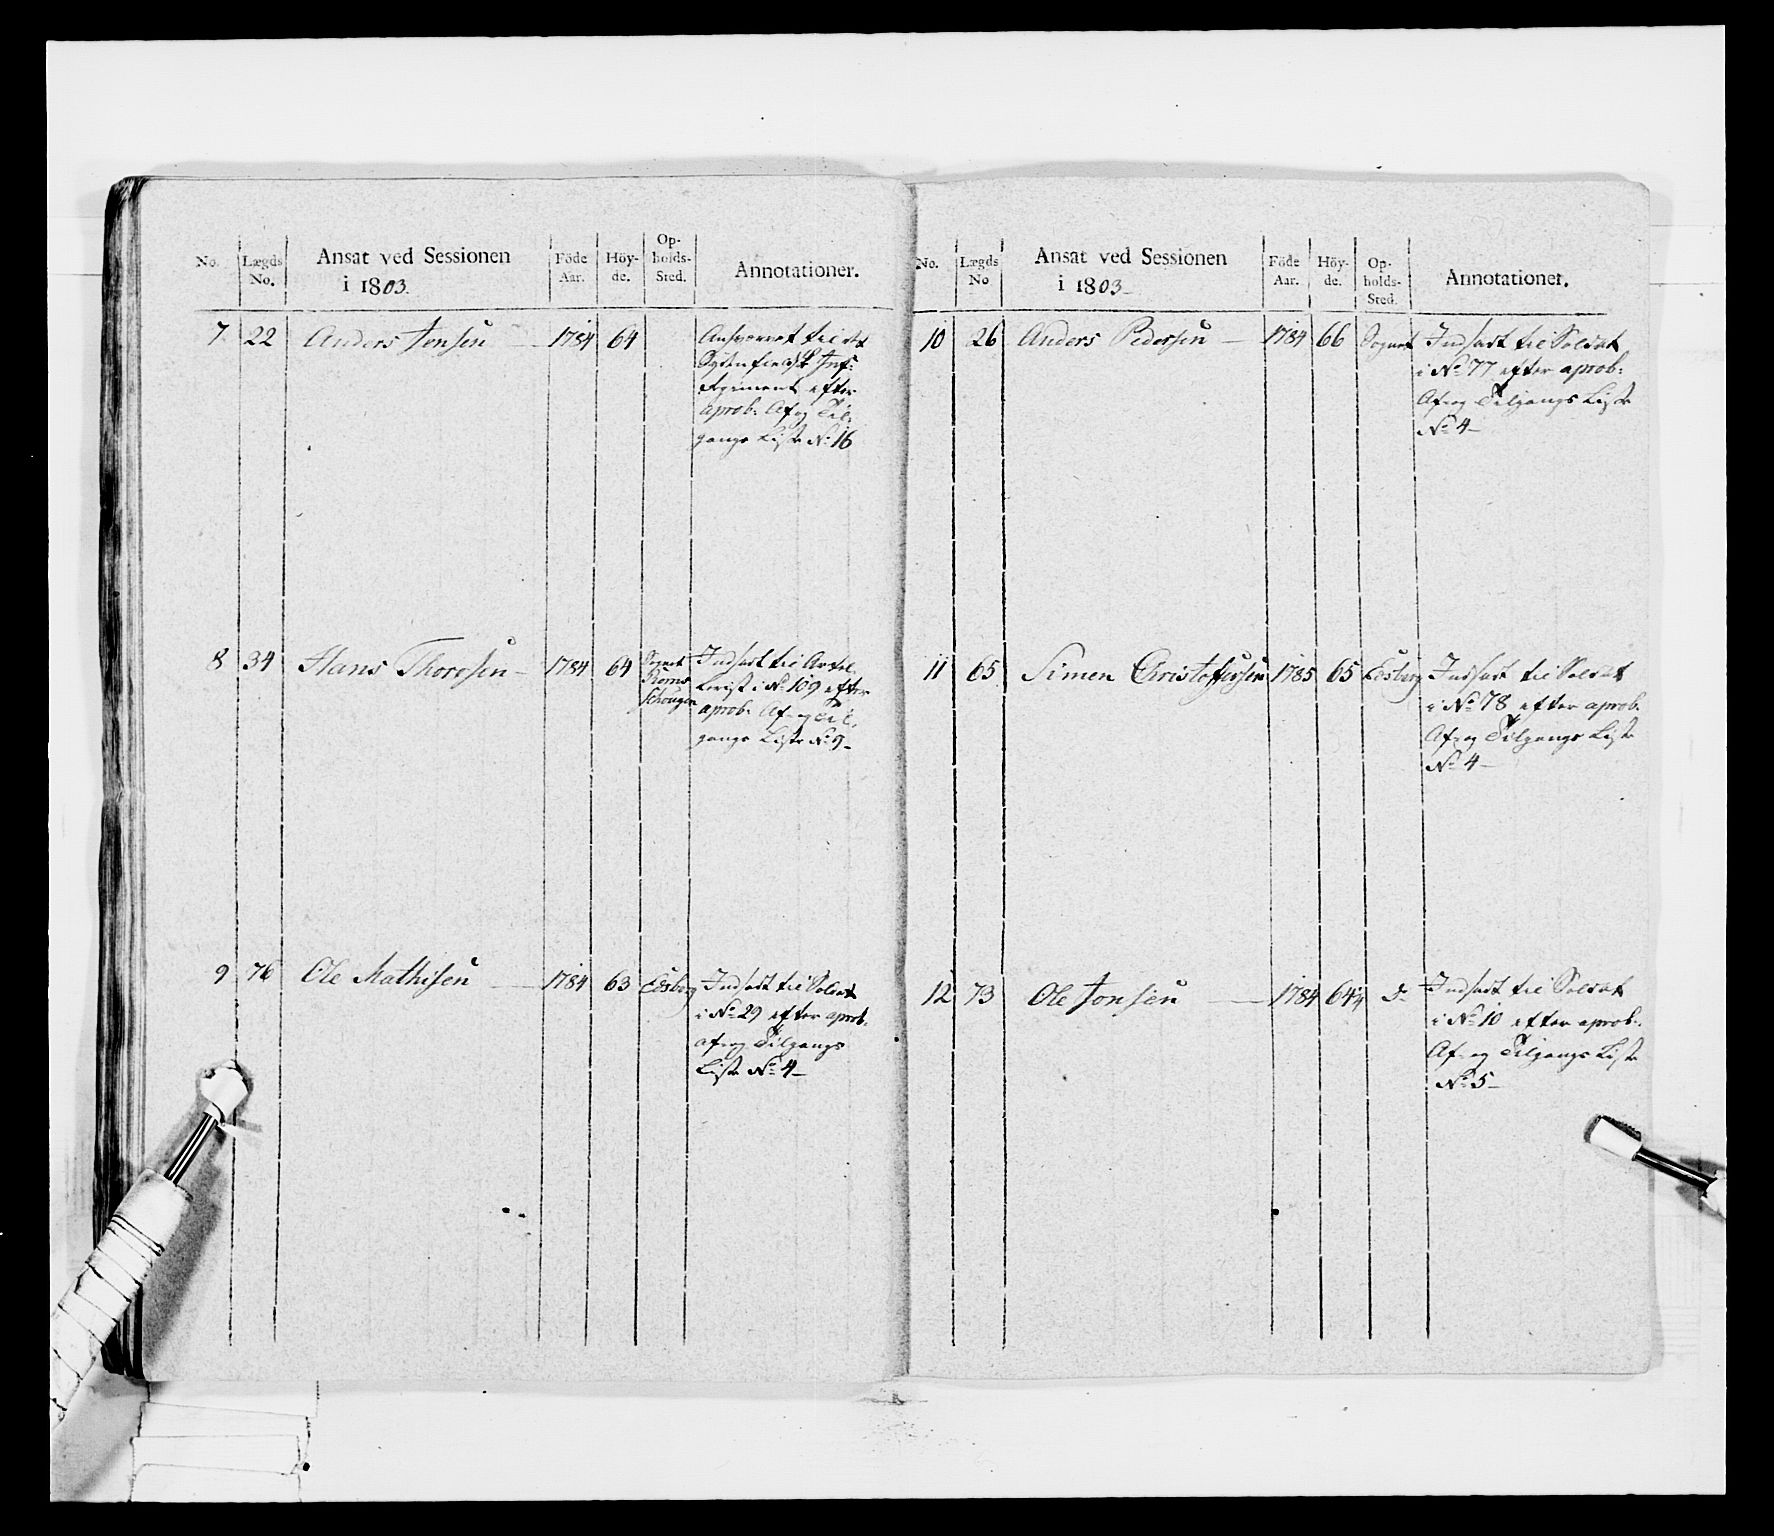 No. Lægds No. Ansat ved Sessionen i 1803. Föde Aar. Höy-de. Op-holds-Sted. Annotationer.
7 22 Anders Jonsen 1784 64
til det
Inf:
Regiment efter
aprob: Af og Til-
gangs Liste No 16
8 34 Hans Thoresen 1784 64 Sognet Indsadt til
i No 109 efter
aprob: Af og Til-
gangs Liste No 9
9 76 Ole Mathisen 1784 63 Edsberg Indsadt til Soldat
i No 29 efter aprob:
af og Tilgangs
Liste No 4
No. Lægds No Ansat ved Sessionen i 1803 Föde Aar. Höy-de. Op-holds-Sted. Annotationer.
10 26 Anders Pedersen 1784 66 Sognet Indsadt til Soldat
i No 77 efter aprob:
Af og Tilgangs Liste
No 4
11 65 Simen Christophersen 1785 65 Edsberg Indsadt til Soldat
i No 78 efter aprob:
Af og Tilgangs Liste
No 4
12 73 Ole Jonsen 1784 64¼ do Indsadt til Soldat
i No 10 efter aprob:
Af og Tilgangs Liste
No 5